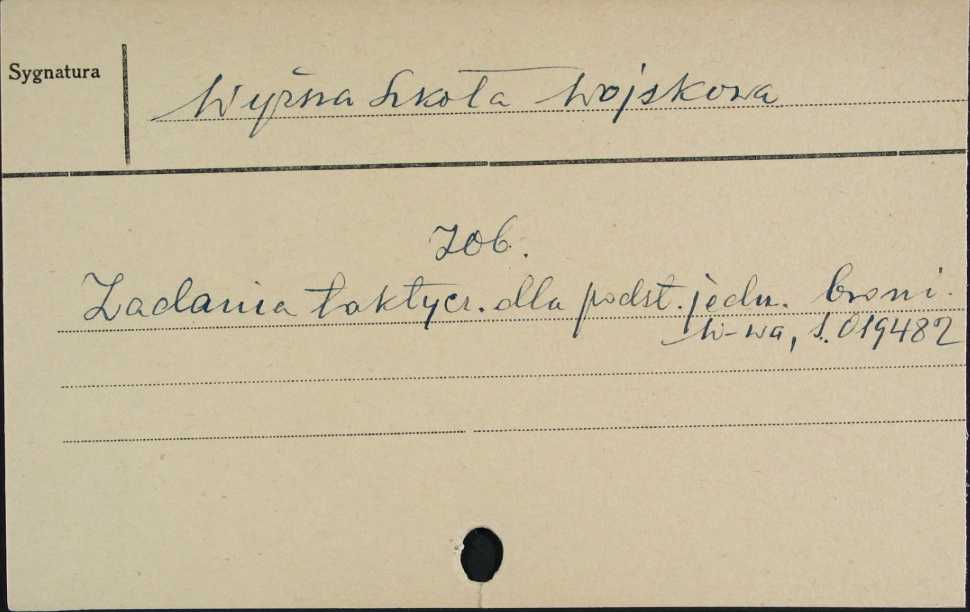 Sygnatura
Wyższa Szkoła Wojskowa
zob.
Zadania taktycz. dla podst. jedn. broni.
W-wa, S. 019482